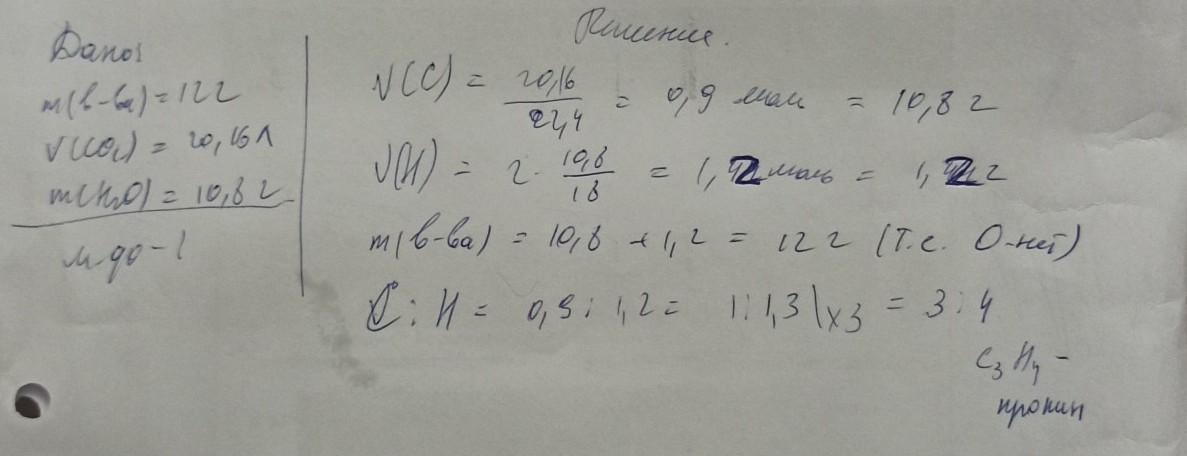 Дано:
m(в-ва) = 12 г
V(CO₂) = 20,16 л
m(H₂O) = 10,8 г
м. ф. - ?
Решение.
ν(C) = 20,16 / 22,4 = 0,9 моль = 10,8 г
ν(H) = 2 · 10,8 / 18 = 1,2 моль = 1,2 г
m(в-ва) = 10,8 + 1,2 = 12 г (т.е. О-нет)
C : H = 0,9 : 1,2 = 1 : 1,3 \ x3 = 3 : 4
C₃H₄ -
пропин